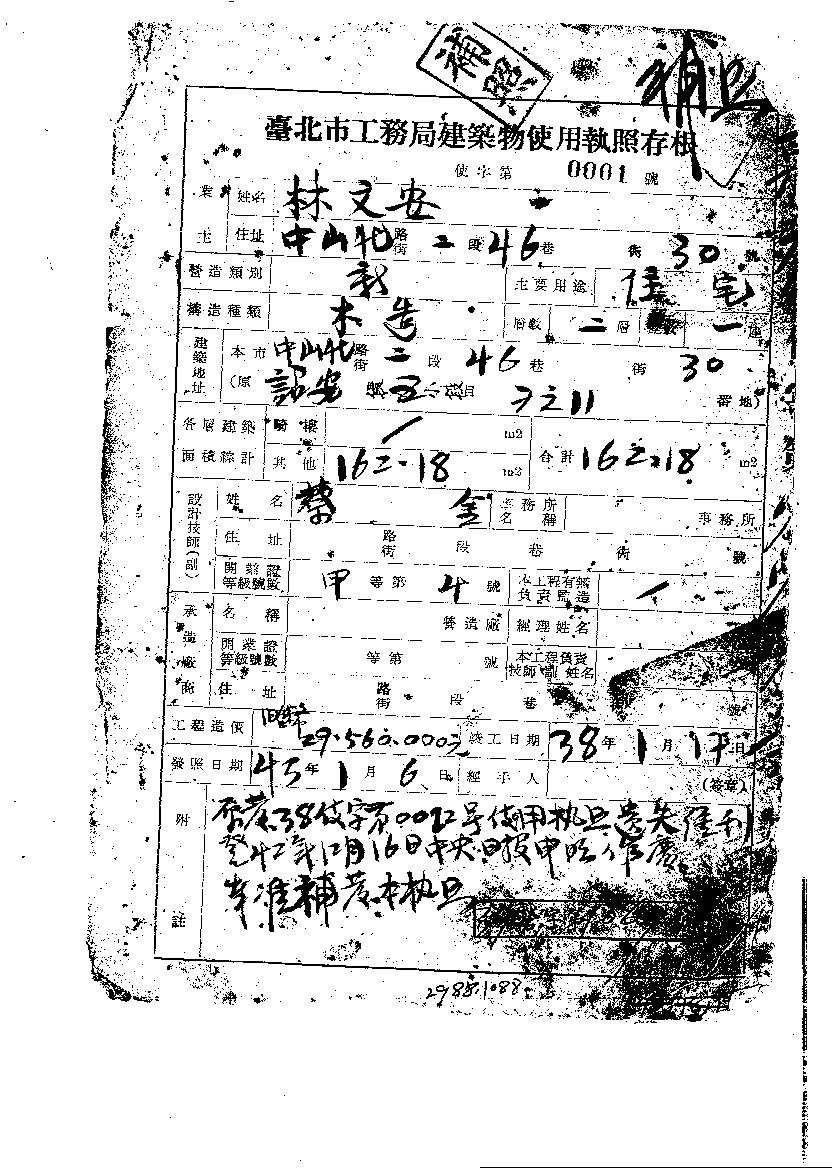 補照
補照
臺北市工務局建築物使用執照存根
使字第 0001 號
業主 姓名 林文安
住址 中山北路街 二段 46巷 街 30號
營造類別 新 主要用途 住宅
構造種類 木造 層數 二層 一
建築地址 本市 中山北路街 二段 46巷 街 30
(原 番地)
各層建築面積綜計 騎樓 / m2 合計 162.18 m2
其他 162.18 m2
設計技師(副) 姓名 蔡 金 事務所名稱 事務所
住址 路街 段 巷 街 號
開業證等級號數 甲等第 4 號 本工程有無負責監造 /
承造廠商 名稱 營造廠 經理姓名
開業證等級號數 等第 號 本工程負責技師(副)姓名
住址 路街 段 巷 號
工程造價 29.560.000元 竣工日期 38年 1月 17日
發照日期 45年 1月 6日 經手人 (簽章)
附註 原發38使字第0012号使用执照遺失
12月16日中央日報申明作廢
准補發本执照
2988.1088